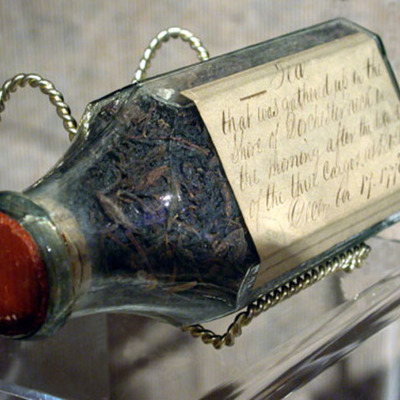 Tea
that was gathered up on the
Shore of Dorchester Neck on
the morning after the
of the three Cargos
December 17, 1773